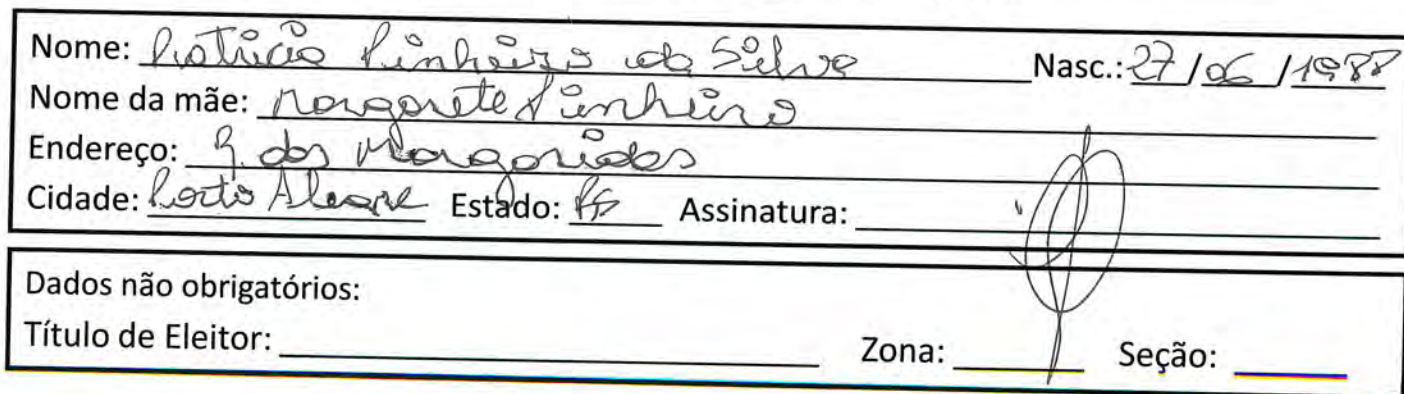 Nome: Patricia Pinheiro da Silva Nasc.: 27/06/1988
Nome da mãe: Margarete Pinheiro
Endereço: R. das Margaridas
Cidade: Porto Alegre Estado: RS Assinatura:
Dados não obrigatórios:
Título de Eleitor: Zona: Seção: